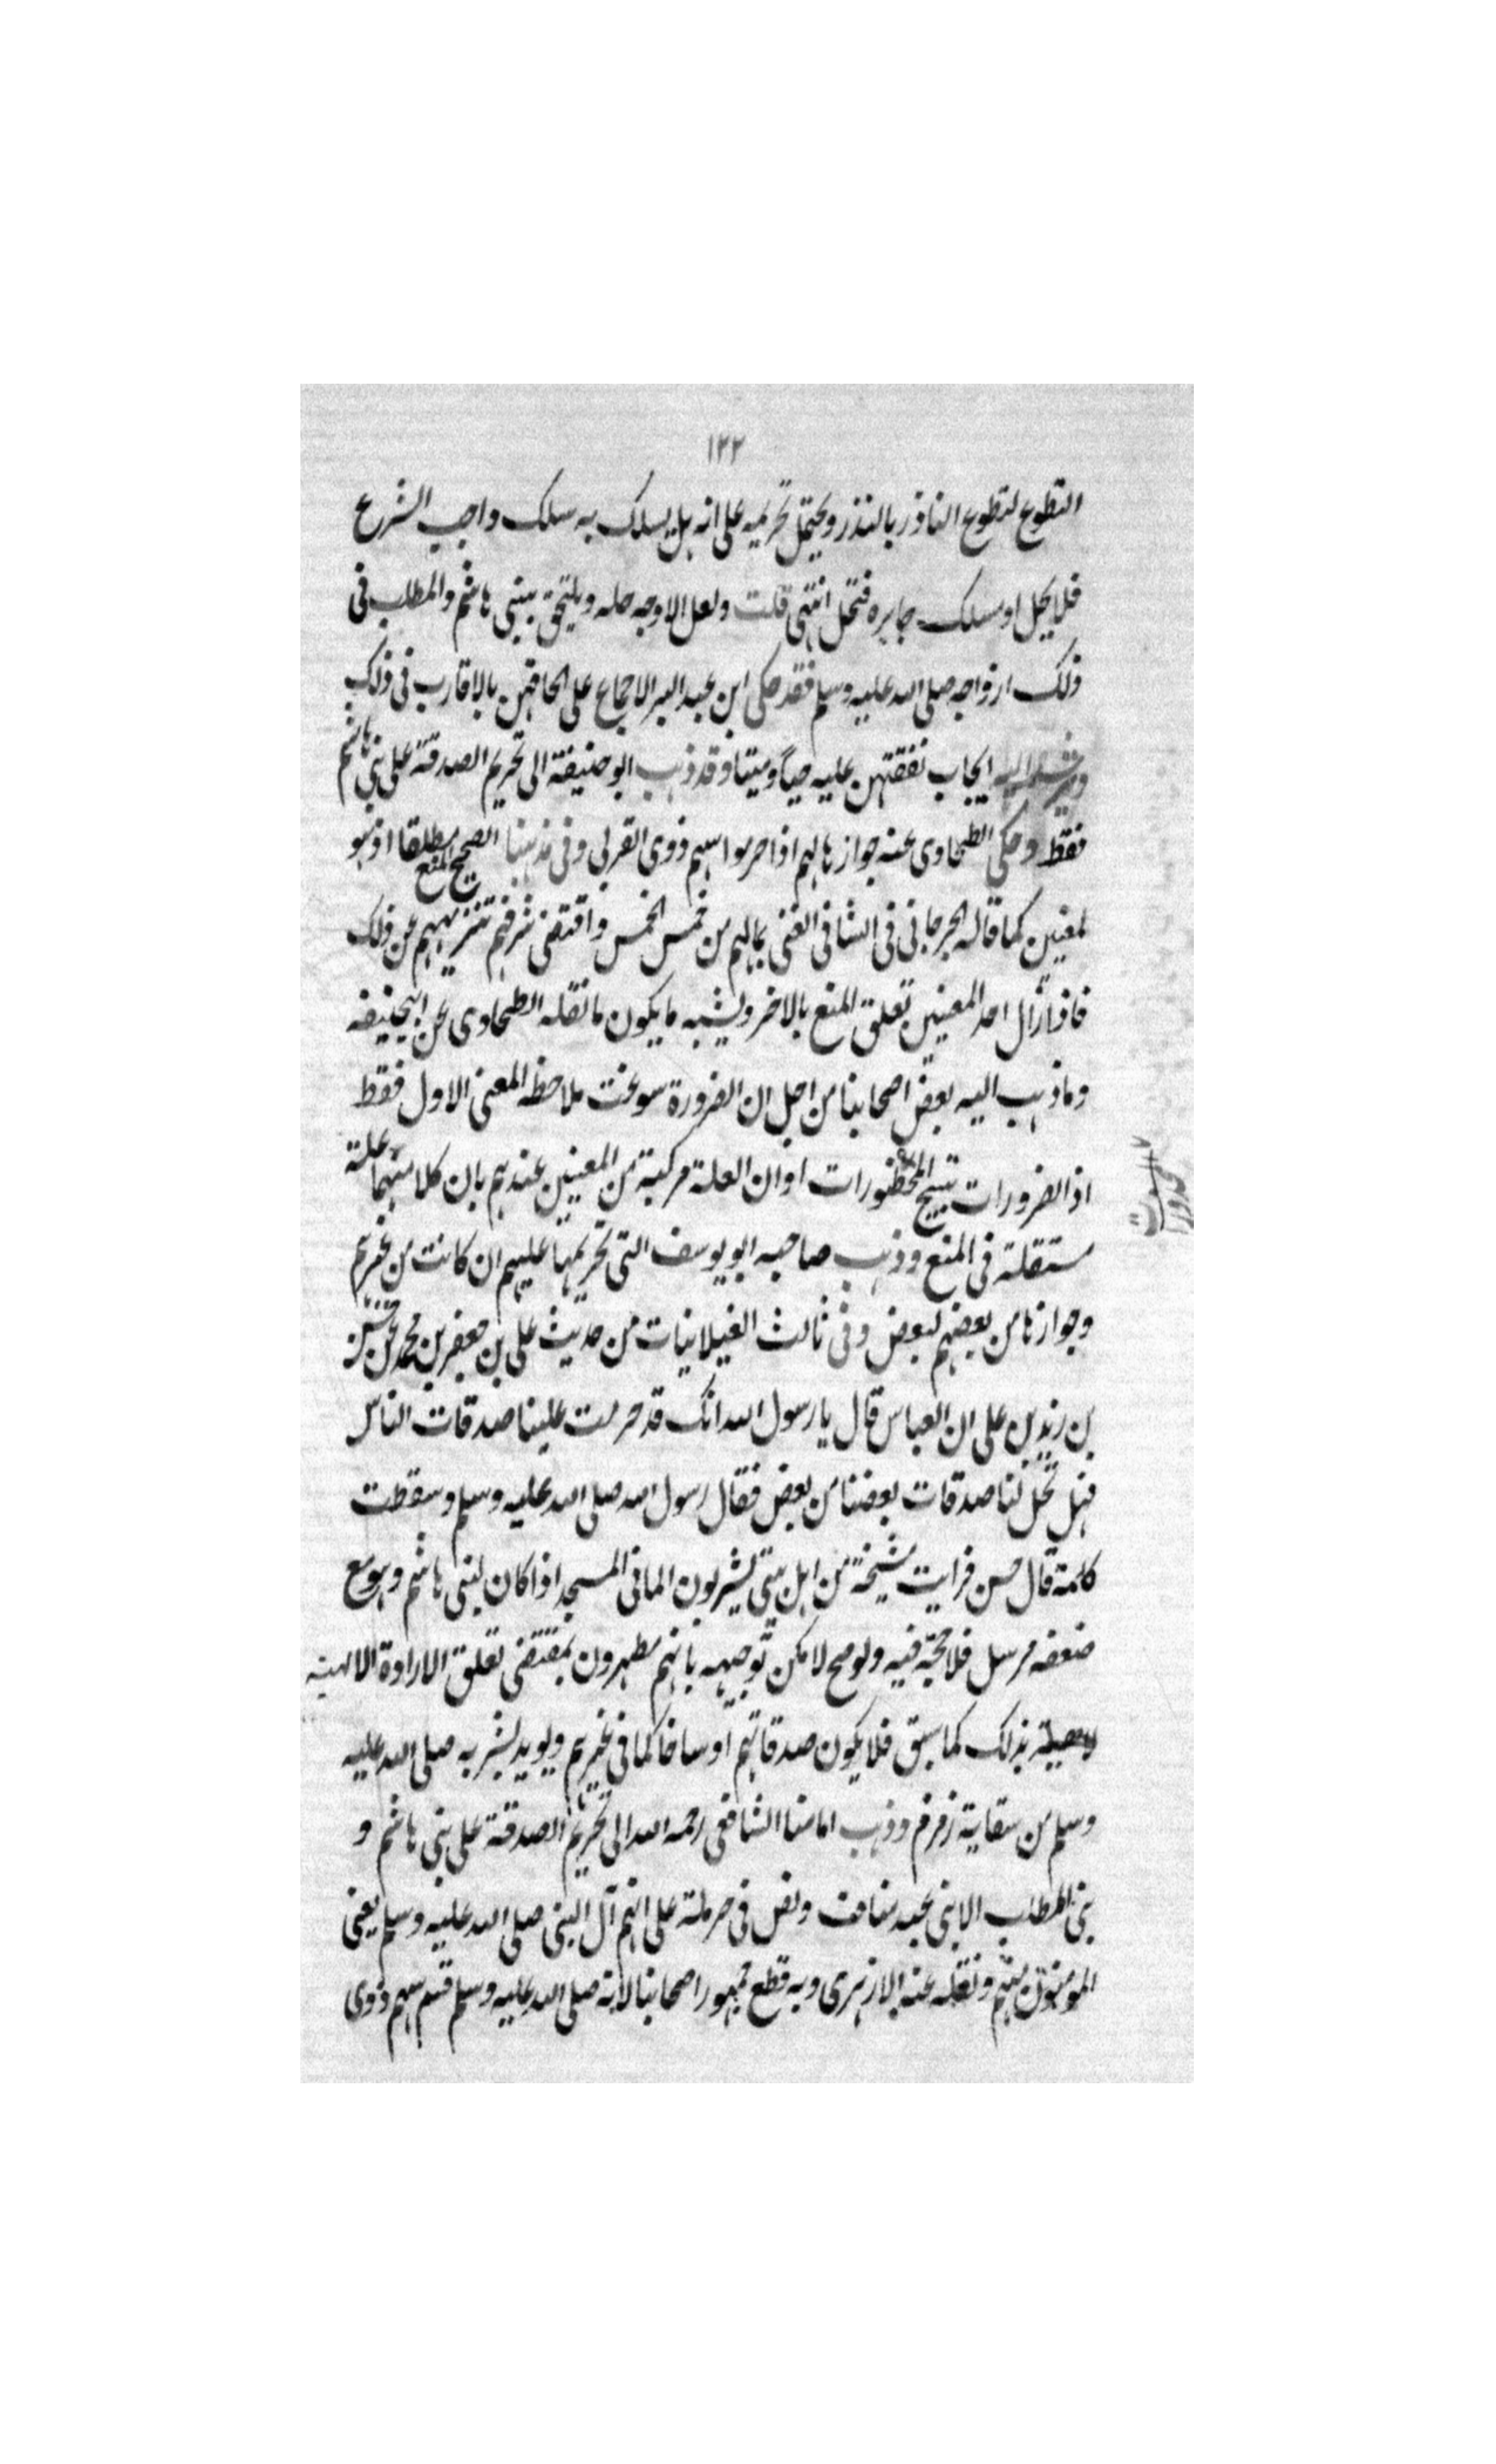 ١٣٢
التطوع لتطوع الناذر بالنذر ويحتمل تحريمه على انه بل يسلك به سلك واجب الشرع
فلا يحل او مسلك جايزه فتحل انتهى قلت ولعل الاوجه حله ويلتحق ببني هاشم والمطلب في
ذلك ازواجه صلى الله عليه وسلم فقد حكى ابن عبد البر الاجماع على الحاقهن بالاقارب في ذلك
ويرشد اليه ايجاب نفقتهن عليه حيا وميتا وقد ذهب ابو حنيفة الى تحريم الصدقة على بني هاشم
فقط وحكى الطحاوى عنه جوازها لهم اذا حرموا سهم ذوى القربى وفي مذهبنا الصحيح المنع مطلقا اذ هو
لمعنين كما قاله الجرجاني في الشافي الغنى بمالهم من خمس الخمس واقتضى شرفهم تنزيههم عن ذلك
فاذا زال احد المعنيين تعلق المنع بالاخر ويشبه ما يكون ما نقله الطحاوى عن ابيحنيفه
وما ذهب اليه بعض اصحابنا من اجل ان الضرورة سوغت ملاحظ المعنى الاول فقط
اذ الضرورات تبيح المحظورات او ان العلة مركبة من المعنيين عندهم بان كلا منهما علة
مستقلة في المنع وذهب صاحبه ابو يوسف التى تحريمها عليهم ان كانت من غيرهم
وجوازها من بعضهم لبعض وفي ثالث الغيلانيات من حديث على بن جعفر بن محمد عن حسين
بن زيد بن على ان العباس قال يا رسول الله انك قد حرمت علينا صدقات الناس
فهل تحل لنا صدقات بعضنا من بعض فقال رسول الله صلى الله عليه وسلم وسقطت
كلمة قال حسن فرايت مشيخة من اهل بيتى يشربون الما في المسجد اذا كان لبنى هاشم وهو مع
ضعفه مرسل فلا حجة فيه ولو صح لامكن توجيهه بانهم مطهرون بمقتضى تعلق الارادة الالهية
بذلك كما سبق فلا يكون صدقاتهم اوساخا كما في غيرهم ويويد لشربه صلى الله عليه
وسلم من سقاية زمزم وذهب امامنا الشافعى رحمه الله الى تحريم الصدقة على بني هاشم و
بنى المطلب الابنى عبد مناف ونص في حرملة على انهم آل النبى صلى الله عليه وسلم يعنى
المومنون منهم ونقله عنه الازهرى وبه قطع جمهور اصحابنا لانه صلى الله عليه وسلم قسم سهم ذوى